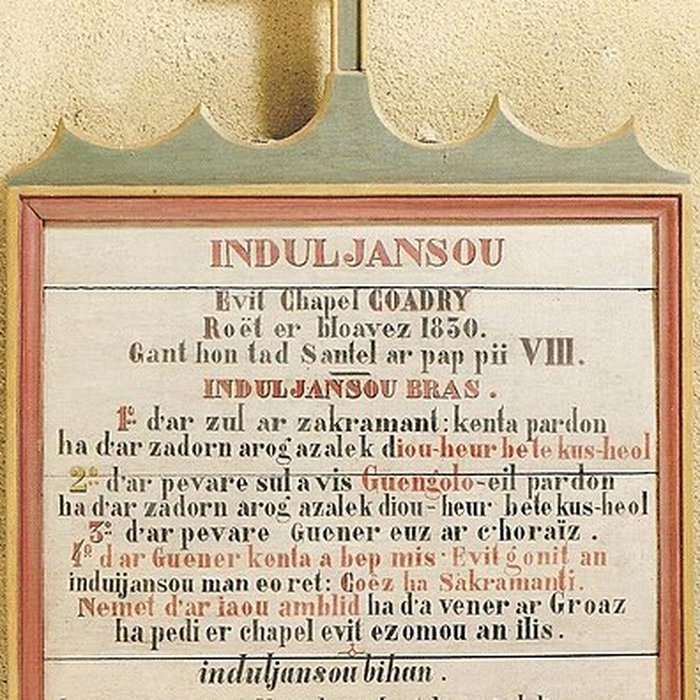 INDULJANSOU
Evit Chapel COADRY
Roët er bloavez 1830.
Gant hon tad Santel ar pap pii VIII.
INDULJANSOU BRAS.
1º d'ar zul ar zakramant: kenta pardon
ha d'ar zadorn arog azalek diou-heur bete kus-heol
2º d'ar pevare sul a vis Guengolo-eil pardon
ha d'ar zadorn arog azalek diou-heur bete kus-heol
3º d'ar pevare Guener euz ar c'horaïz.
4º d ar Guener kenta a bep mis· Evit gonit an
induijansou man eo ret: Coëz ha Sakramanti.
Nemet d'ar iaou amblid ha d'a vener ar Groaz
ha pedi er chapel evit ezomou an ilis.
induljansou bihan.